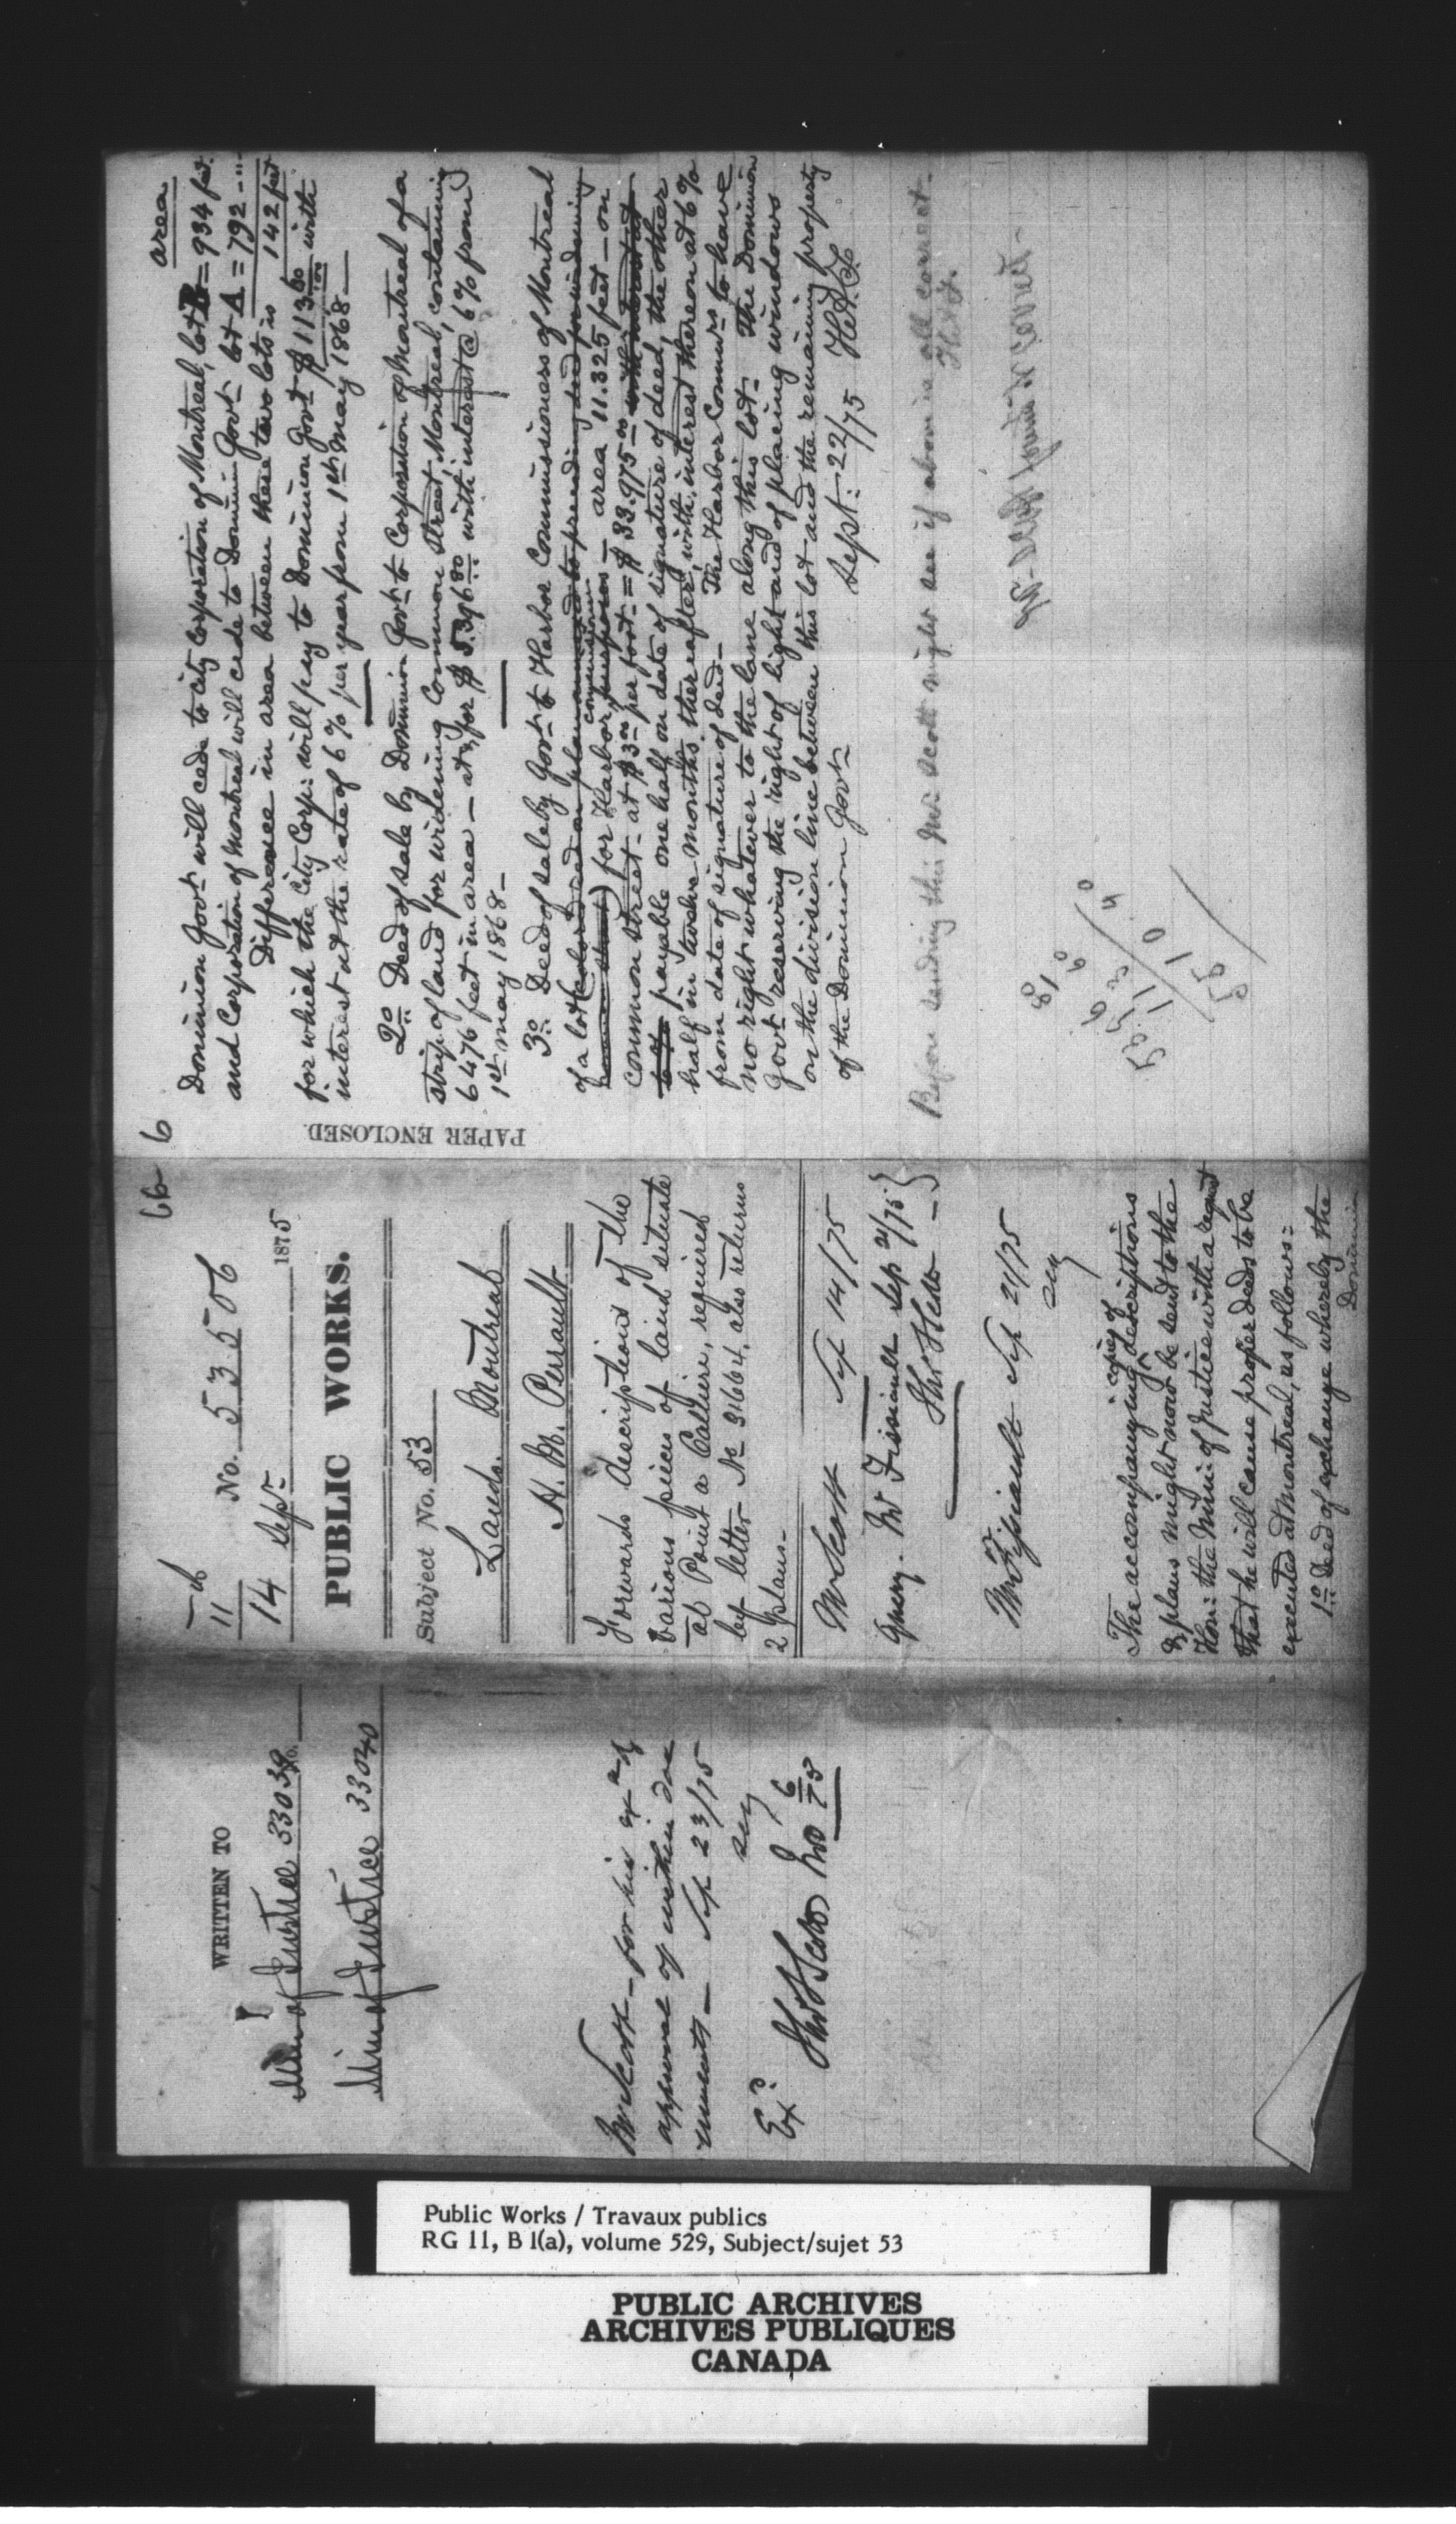 WRITTEN TO
Min of Justice 33039
No.
Min of Justice 33040
Mr Scott — for his
approval of within
Sep 23/75
Exd
Nov 6/75
66
11
No. 53506
14 Sepr 1875
PUBLIC WORKS.
Subject No. 53
Lands. Montreal
H. M. Perrault
Forwards descriptions of the
various pieces of land situate
at Point a Calliere, required
by letter No 31664, also returns
2 plans.
Mr Scott Sep 14/75
Query. Mr Fissiault Sep 21/75
Mr Fissiault Sep 21/75
copies of
The accompanying descriptions
& plans might now be send to the
Hon: the Min: of Justice with a request
that he will cause proper deeds to be
executed at Montreal, as follows:
1o Deed of exchange whereby the
Dominion
6
PAPER ENCLOSED.
area
Dominion Govt will cede to City Corporation of Montreal, lot B = 934 feet.
and Corporation of Montreal will cede to Dominion Govt lot A = 792 - "
Difference in area between these two lots is 142 feet
for which the City Corp: will pay to Dominion Govt $113.60 with
interest at the rate of 6 % per year from 1st May 1868 —
2o Deed of sale by Dominion Govt to Corporation of Montreal of a
strip of land for widening Common Street, Montreal, containing
6476 feet in area — for $5.396.80 with interest @ 6 % from
1st may 1868 —
3o Deed of sale by Govt to Harbor Commissioners of Montreal
of a lot (colored red on plan annexed to preceding deed for widening
common street) for Harbor purposes — area 11.325 feet — on
common street — at $3.00 per foot = $33.975.00 with interest at
6 % payable one half on date of signature of deed, the other
half in twelve months thereafter, with interest thereon at 6 %
from date of signature of deed — The Harbor Commrs to have
no right whatever to the lane along this lot — The Dominion
Govt reserving the right of light and of placing windows
on the division line between this lot and the remaining property
of the Dominion Govt. Sept: 22/75
Before sending this Mr. Scott might see if above is all correct —